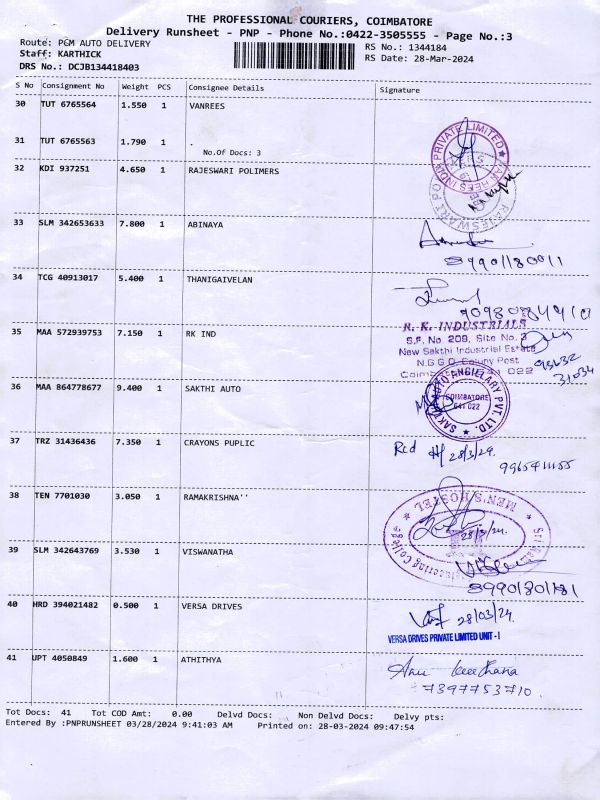 THE PROFESSIONAL COURIERS, COIMBATORE
Delivery Runsheet - PNP - Phone No.:0422-3505555 - Page No.:3
Route: PGM AUTO DELIVERY RS No.: 1344184
Staff: KARTHICK RS Date: 28-Mar-2024
DRS No.: DCJB134418403
S No Consignment No Weight PCS Consignee Details Signature
30 TUT 6765564 1.550 1 VANREES
31 TUT 6765563 1.790 1 .
No.Of Docs: 3
PRIVATE LIMITED
VAN REES INDIA
32 KDI 937251 4.650 1 RAJESWARI POLIMERS
33 SLM 342653633 7.800 1 ABINAYA
34 TCG 40913017 5.400 1 THANIGAIVELAN
35 MAA 572939753 7.150 1 RK IND
R. K. INDUSTRIALS
S.F. No. 209, Site No. 3
New Sakthi Industrial Estate
N.G.G.O. Colony Post
93632
31034
36 MAA 864778677 9.400 1 SAKTHI AUTO
SAKTHI AUTO ANCILLARY PVT. LTD.
COIMBATORE
641 022
37 TRZ 31436436 7.350 1 CRAYONS PUPLIC
Rcd 28/3/24.
38 TEN 7701030 3.050 1 RAMAKRISHNA''
MEN'S HOSTEL
28/3/24.
Engineering College
39 SLM 342643769 3.530 1 VISWANATHA
40 HRD 394021482 0.500 1 VERSA DRIVES
28/03/24.
VERSA DRIVES PRIVATE LIMITED UNIT - I
41 UPT 4050849 1.600 1 ATHITHYA
7397753710.
Tot Docs: 41 Tot COD Amt: 0.00 Delvd Docs: Non Delvd Docs: Delvy pts:
Entered By :PNPRUNSHEET 03/28/2024 9:41:03 AM Printed on: 28-03-2024 09:47:54